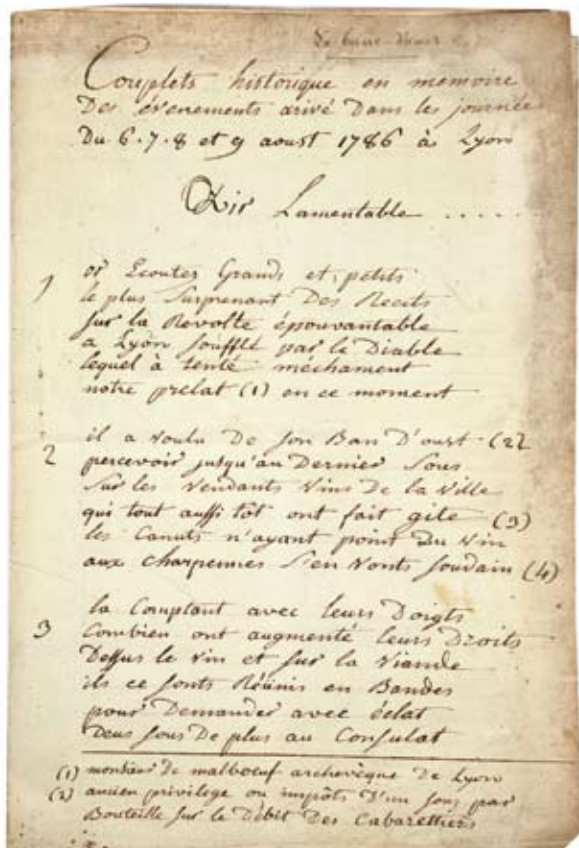 Couplets historique en memoire
Des evenements arivé Dans les journées
Du 6. 7. 8 et 9 aoust 1786 à Lyon
Air Lamentable .....
1 or Ecoutez Grands et petits
le plus Surprenant Des Recits
sur la Revolte épouvantable
a Lyon soufflé par le Diable
lequel à tenté méchament
notre prelat (1) en ce moment
2 il a voulu De son Ban D'oust (2)
percevoir jusqu'au Dernier Sous
Sur les Vendants Vins De la Ville
qui tout aussi tot ont fait gile (3)
les Canuts n'ayant point Du Vin
aux charpennes S'en Vonts soudain (4)
3 la Comptant avec leurs Doigts
Combien ont augmenté leurs Droits
Dessus le Vin et sur la Viande
ils ce sonts Réünis en Bandes
pour Demander avec éclat
Deus sous De plus au Consulat
(1) monsieur De malboeuf archevêque De Lyon
(2) ancien privilege ou impôts D'un sous par
Bouteille sur le Debit Des Cabarettiers